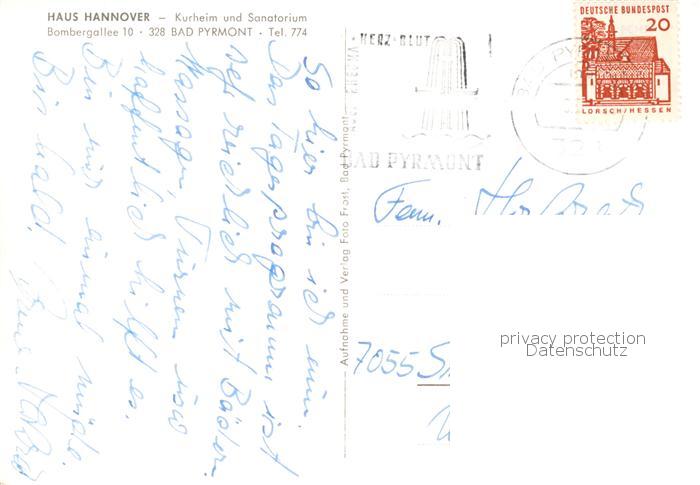 HAUS HANNOVER – Kurheim und Sanatorium
Bombergallee 10 · 328 BAD PYRMONT · Tel. 774
So hier bin ich nun.
Das Tagesprogramm ist
sehr reichlich mit Bäder
Massagen, Turnen usw
hoffentlich hilft es.
Bin nur einmal müde.
Bis bald.
Aufnahme und Verlag Foto Frost, Bad Pyrmont
HERZ · BLUT
BAD PYRMONT
DEUTSCHE BUNDESPOST
20
LORSCH/HESSEN
Fam.
7055
privacy protection
Datenschutz